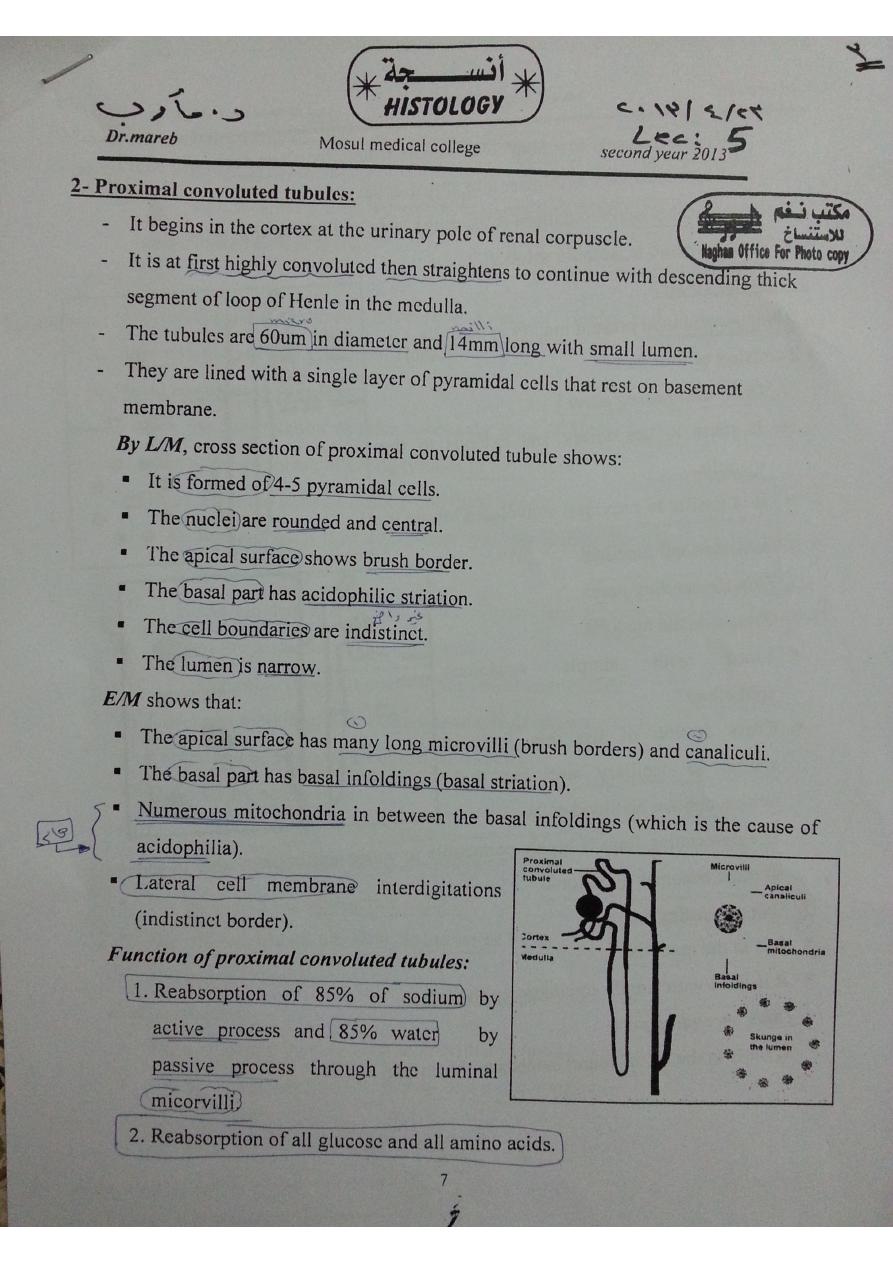 أنسـجة
HISTOLOGY
د. مأرب
Dr.mareb
Mosul medical college
Lec: 5
second year 2013
مكتب نغم
للاستنساخ
Naghan Office For Photo copy
2- Proximal convoluted tubules:
- It begins in the cortex at the urinary pole of renal corpuscle.
- It is at first highly convoluted then straightens to continue with descending thick
segment of loop of Henle in the medulla.
micro milli
- The tubules are 60um in diameter and 14mm long with small lumen.
- They are lined with a single layer of pyramidal cells that rest on basement
membrane.
By L/M, cross section of proximal convoluted tubule shows:
▪ It is formed of 4-5 pyramidal cells.
▪ The nuclei are rounded and central.
▪ The apical surface shows brush border.
▪ The basal part has acidophilic striation.
غير واضح
▪ The cell boundaries are indistinct.
▪ The lumen is narrow.
E/M shows that:
▪ The apical surface has many long microvilli (brush borders) and canaliculi.
▪ The basal part has basal infoldings (basal striation).
▪ Numerous mitochondria in between the basal infoldings (which is the cause of
acidophilia).
▪ Lateral cell membrane interdigitations
(indistinct border).
Function of proximal convoluted tubules:
1. Reabsorption of 85% of sodium by
active process and 85% water by
passive process through the luminal
micorvilli
2. Reabsorption of all glucose and all amino acids.
Proximal
convoluted
tubule
Cortex
Medulla
Microvilli
Apical
canaliculi
Basal
mitochondria
Basal
infoldings
Skunge in
the lumen
7